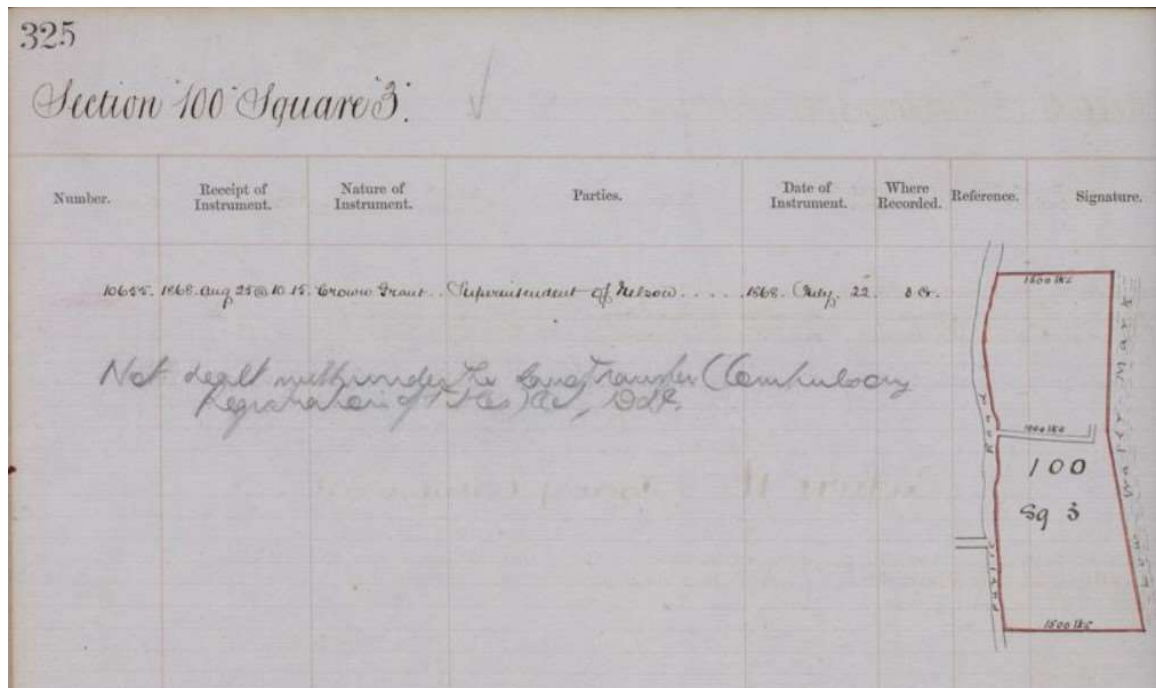 325
Section 100 Square 3.
Number.
Receipt of Instrument.
Nature of Instrument.
Parties.
Date of Instrument.
Where Recorded.
Reference.
Signature.
10655. 1868. Aug 25 @ 10.15. Crown Grant.. Superintendent of Nelson.... 1868. July. 22. 8 Gr.
Not dealt with under the Land Transfer (Compulsory
Registration of Titles) Act,
1500 lks
1000 lks
100
Sq 3
1500 lks
Road
Public
Low Water Mark